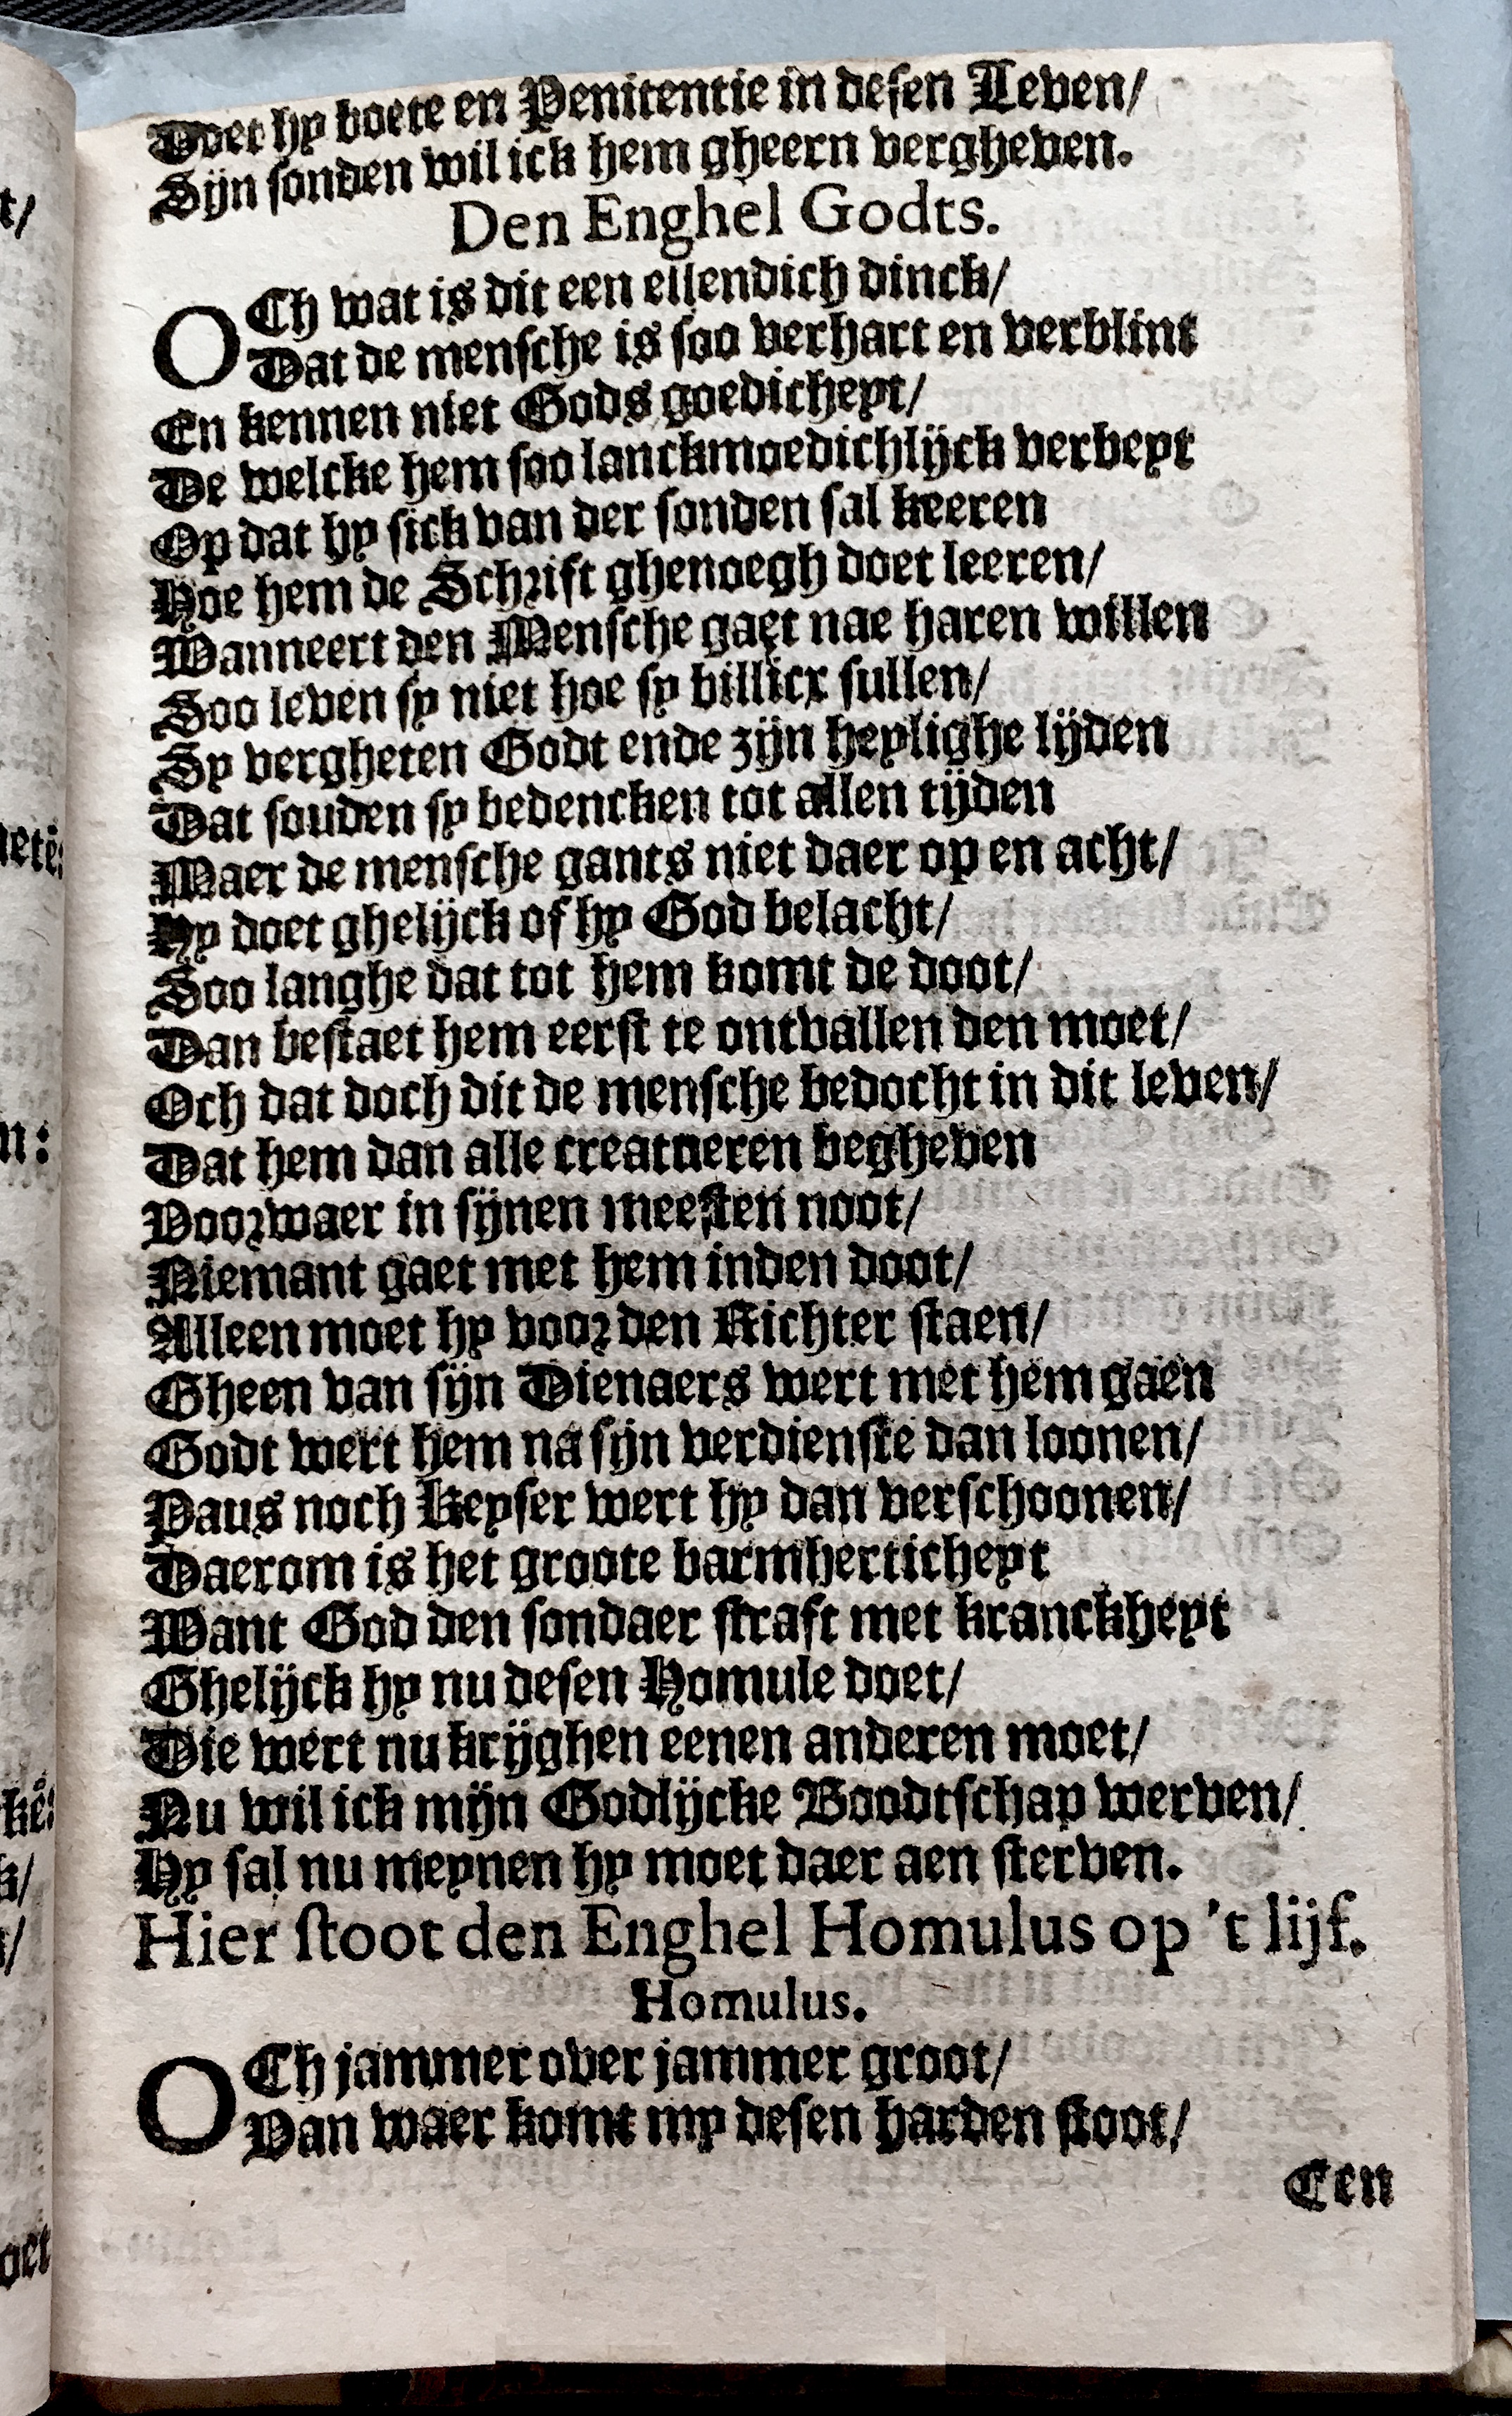 Doet hy boete en Penitentie in desen Leven/
Sijn sonden wil ick hem gheern vergheven.
Den Enghel Godts.
OCh wat is dit een ellendich dinck/
Dat de mensche is soo verhart en verblint
En kennen niet Gods goedicheyt/
De welcke hem soo lanckmoedichlijck verbeyt
Op dat hy sick van der sonden sal keeren
Hoe hem de Schrift ghenoegh doet leeren/
Wanneert den Mensche gaet nae haren willen
Soo leven sy niet hoe sy billicx sullen/
Sy vergheten Godt ende zijn heylighe lijden
Dat souden sy bedencken tot allen tijden
Maer de mensche gants niet daer op en acht/
Hy doet ghelijck of hy God belacht/
Soo langhe dat tot hem komt de doot/
Dan bestaet hem eerst te ontvallen den moet/
Och dat doch dit de mensche bedocht in dit leven/
Dat hem dan alle creatueren begheven
Voorwaer in sijnen meesten noot/
Niemant gaet met hem inden doot/
Alleen moet hy voor den Richter staen/
Gheen van sijn Dienaers wert met hem gaen
Godt wert hem na sijn verdienste dan loonen/
Paus noch Keyser wert hy dan verschoonen/
Daerom is het groote barmherticheyt
Want God den sondaer straft met kranckheyt
Ghelijck hy nu desen Homule doet/
Die wert nu krijghen eenen anderen moet/
Nu wil ick mijn Godlijcke Boodtschap werven/
Hy sal nu meynen hy moet daer aen sterven.
Hier stoot den Enghel Homulus op 't lijf.
Homulus.
OCh jammer over jammer groot/
Van waer komt my desen harden stoot/
Een